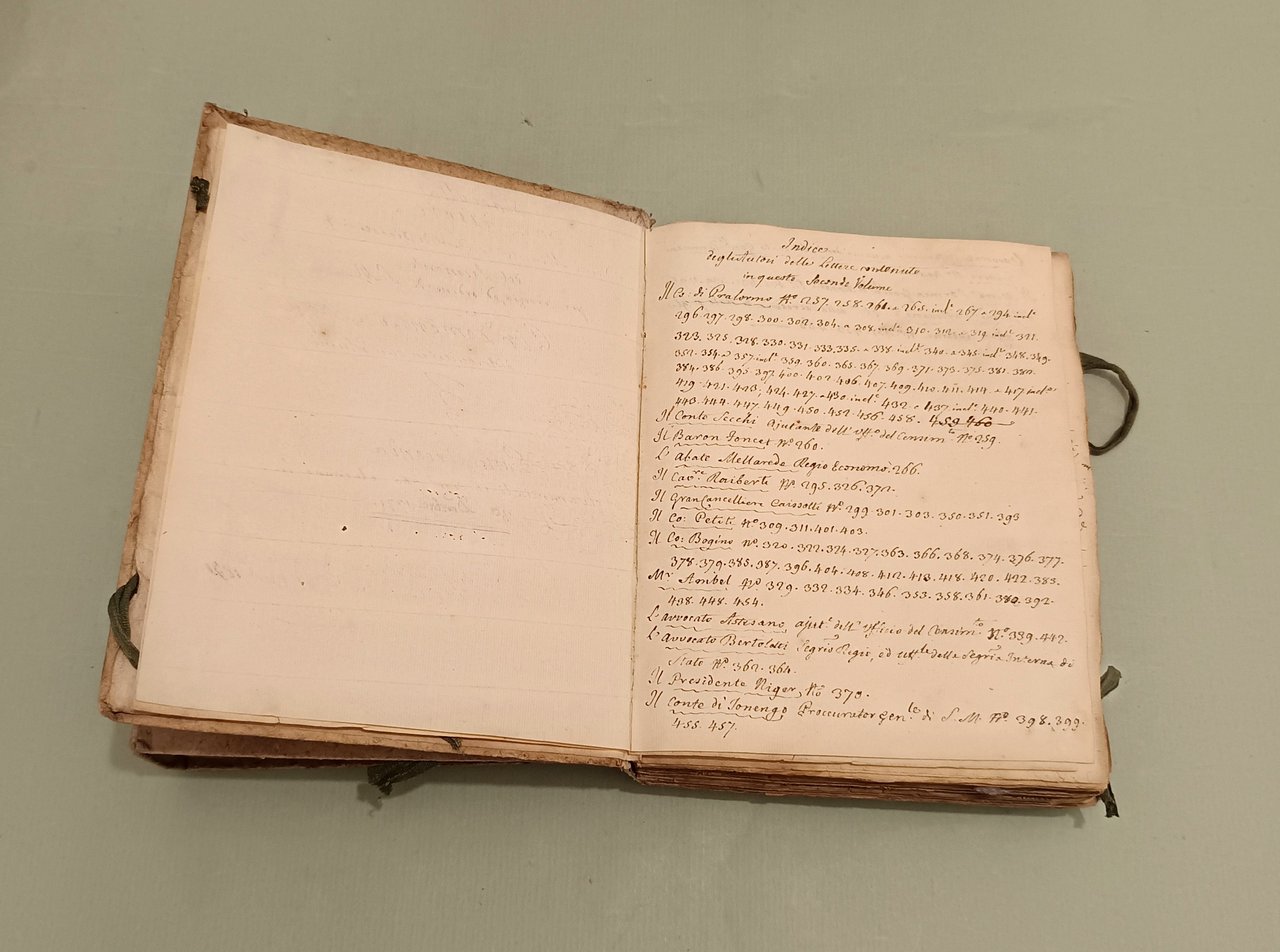 Indice
degli Autori delle Lettere contenute
in questo Secondo Volume
Il Co: di Pralormo N.º 257. 258. 261. a 265. incl.e 267 a 294 incl.e
296. 297. 298. 300. 302. 304. a 308. incl.e 310. 312. a 319. incl.e 321.
323. 325. 328. 330. 331. 333. 335. a 338 incl.e 340. a 345. incl.e 348. 349.
352. 354. a 357. incl.e 359. 360. 365. 367. 369. 371. 373. 375. 381. 382.
384. 386. 395. 397. 400. 402. 406. 407. 409. 410. 411. 414. a 417 incl.e
419. 421. 423. 424. 427. a 430 incl.e 432. a 437. incl.e 440. 441.
443. 444. 447. 449. 450. 452. 456. 458. 459 460
Il Conte Secchi Ajutante dell' uff.º del Censim.to Nº 259.
Il Baron Foncet Nº 260.
L' Abate Mellarede Regio Economo. 266.
Il Cav.re Raiberti Nº. 295. 326. 372.
Il Gran Cancelliere Caissotti Nº. 299. 301. 303. 350. 351. 393
Il Co: Petiti Nº 309. 311. 401. 403.
Il Co: Bogino Nº. 320. 322. 324. 327. 363. 366. 368. 374. 376. 377.
378. 379. 385. 387. 396. 404. 408. 412. 413. 418. 420. 422. 383.
M.r Ambel Nº. 329. 332. 334. 346. 353. 358. 361. 380. 392.
438. 448. 454.
L' avvocato Astesano, ajut.e dell' ufficio del Censim.to Nº. 339. 442.
L' Avvocato Bertoldi Segrio Regio, ed uff.le della Segria Interna di
Stato Nº. 362. 364.
Il Presidente Niger, Nº 370.
Il Conte di Tonengo Proccurator gen.le di S. M. Nº 398. 399.
455. 457.